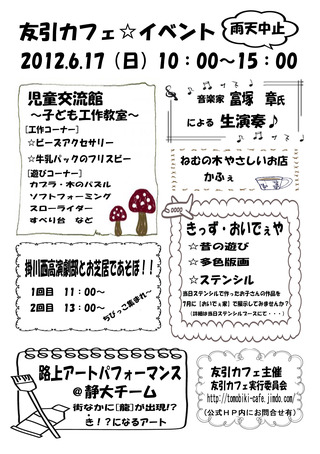 友引カフェ☆イベント
雨天中止
2012.6.17（日）10：00～15：00
児童交流館
～子ども工作教室～
[工作コーナー]
☆ビーズアクセサリー
☆牛乳パックのフリスビー
[遊びコーナー]
カプラ・木のパズル
ソフトフォーミング
スローライダー
すべり台　など
音楽家　富塚　章氏
による　生演奏♪
ねむの木やさしいお店
かふぇ
きっず・おいでぇや
☆昔の遊び
☆多色版画
☆ステンシル
当日ステンシルで作ったお子さんの作品を
7月に［おいでぇ家］で展示してみませんか？
（詳細は当日ステンシルブースにて・・・）
掛川西高演劇部とお芝居であそぼ！！
1回目　11：00～
2回目　13：00～
ちびっこ集まれ～
路上アートパフォーマンス
＠静大チーム
街なかに[龍]が出現!？
き！？になるアート
友引カフェ主催
友引カフェ実行委員会
http://tomobiki-cafe.jimdo.com/
（公式HP内にお問合せ有）